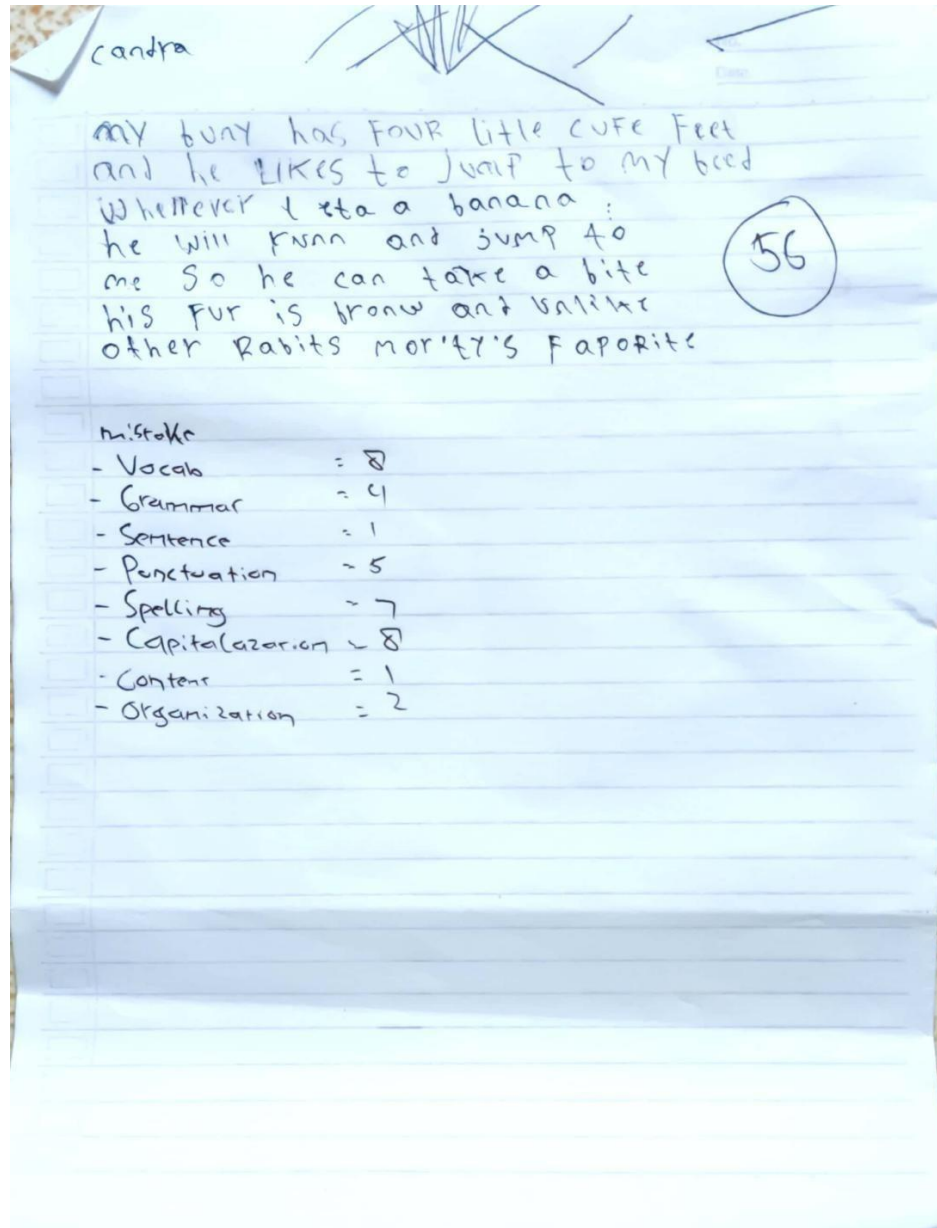 candra
No.
Date
my buny has FOUR litle cuFe Feet
and he LIKES to Jump to my beed
Whellever I eta a banana :
he will runn and jump to
me So he can take a bite
his Fur is bronw and Unlike
other Rabits mor'ty's FapoRite
56
mistake
- Vocab = 8
- Grammar = 4
- Sentence = 1
- Punctuation - 5
- Spelling - 7
- Capitalazation - 8
- Content = 1
- Organization = 2